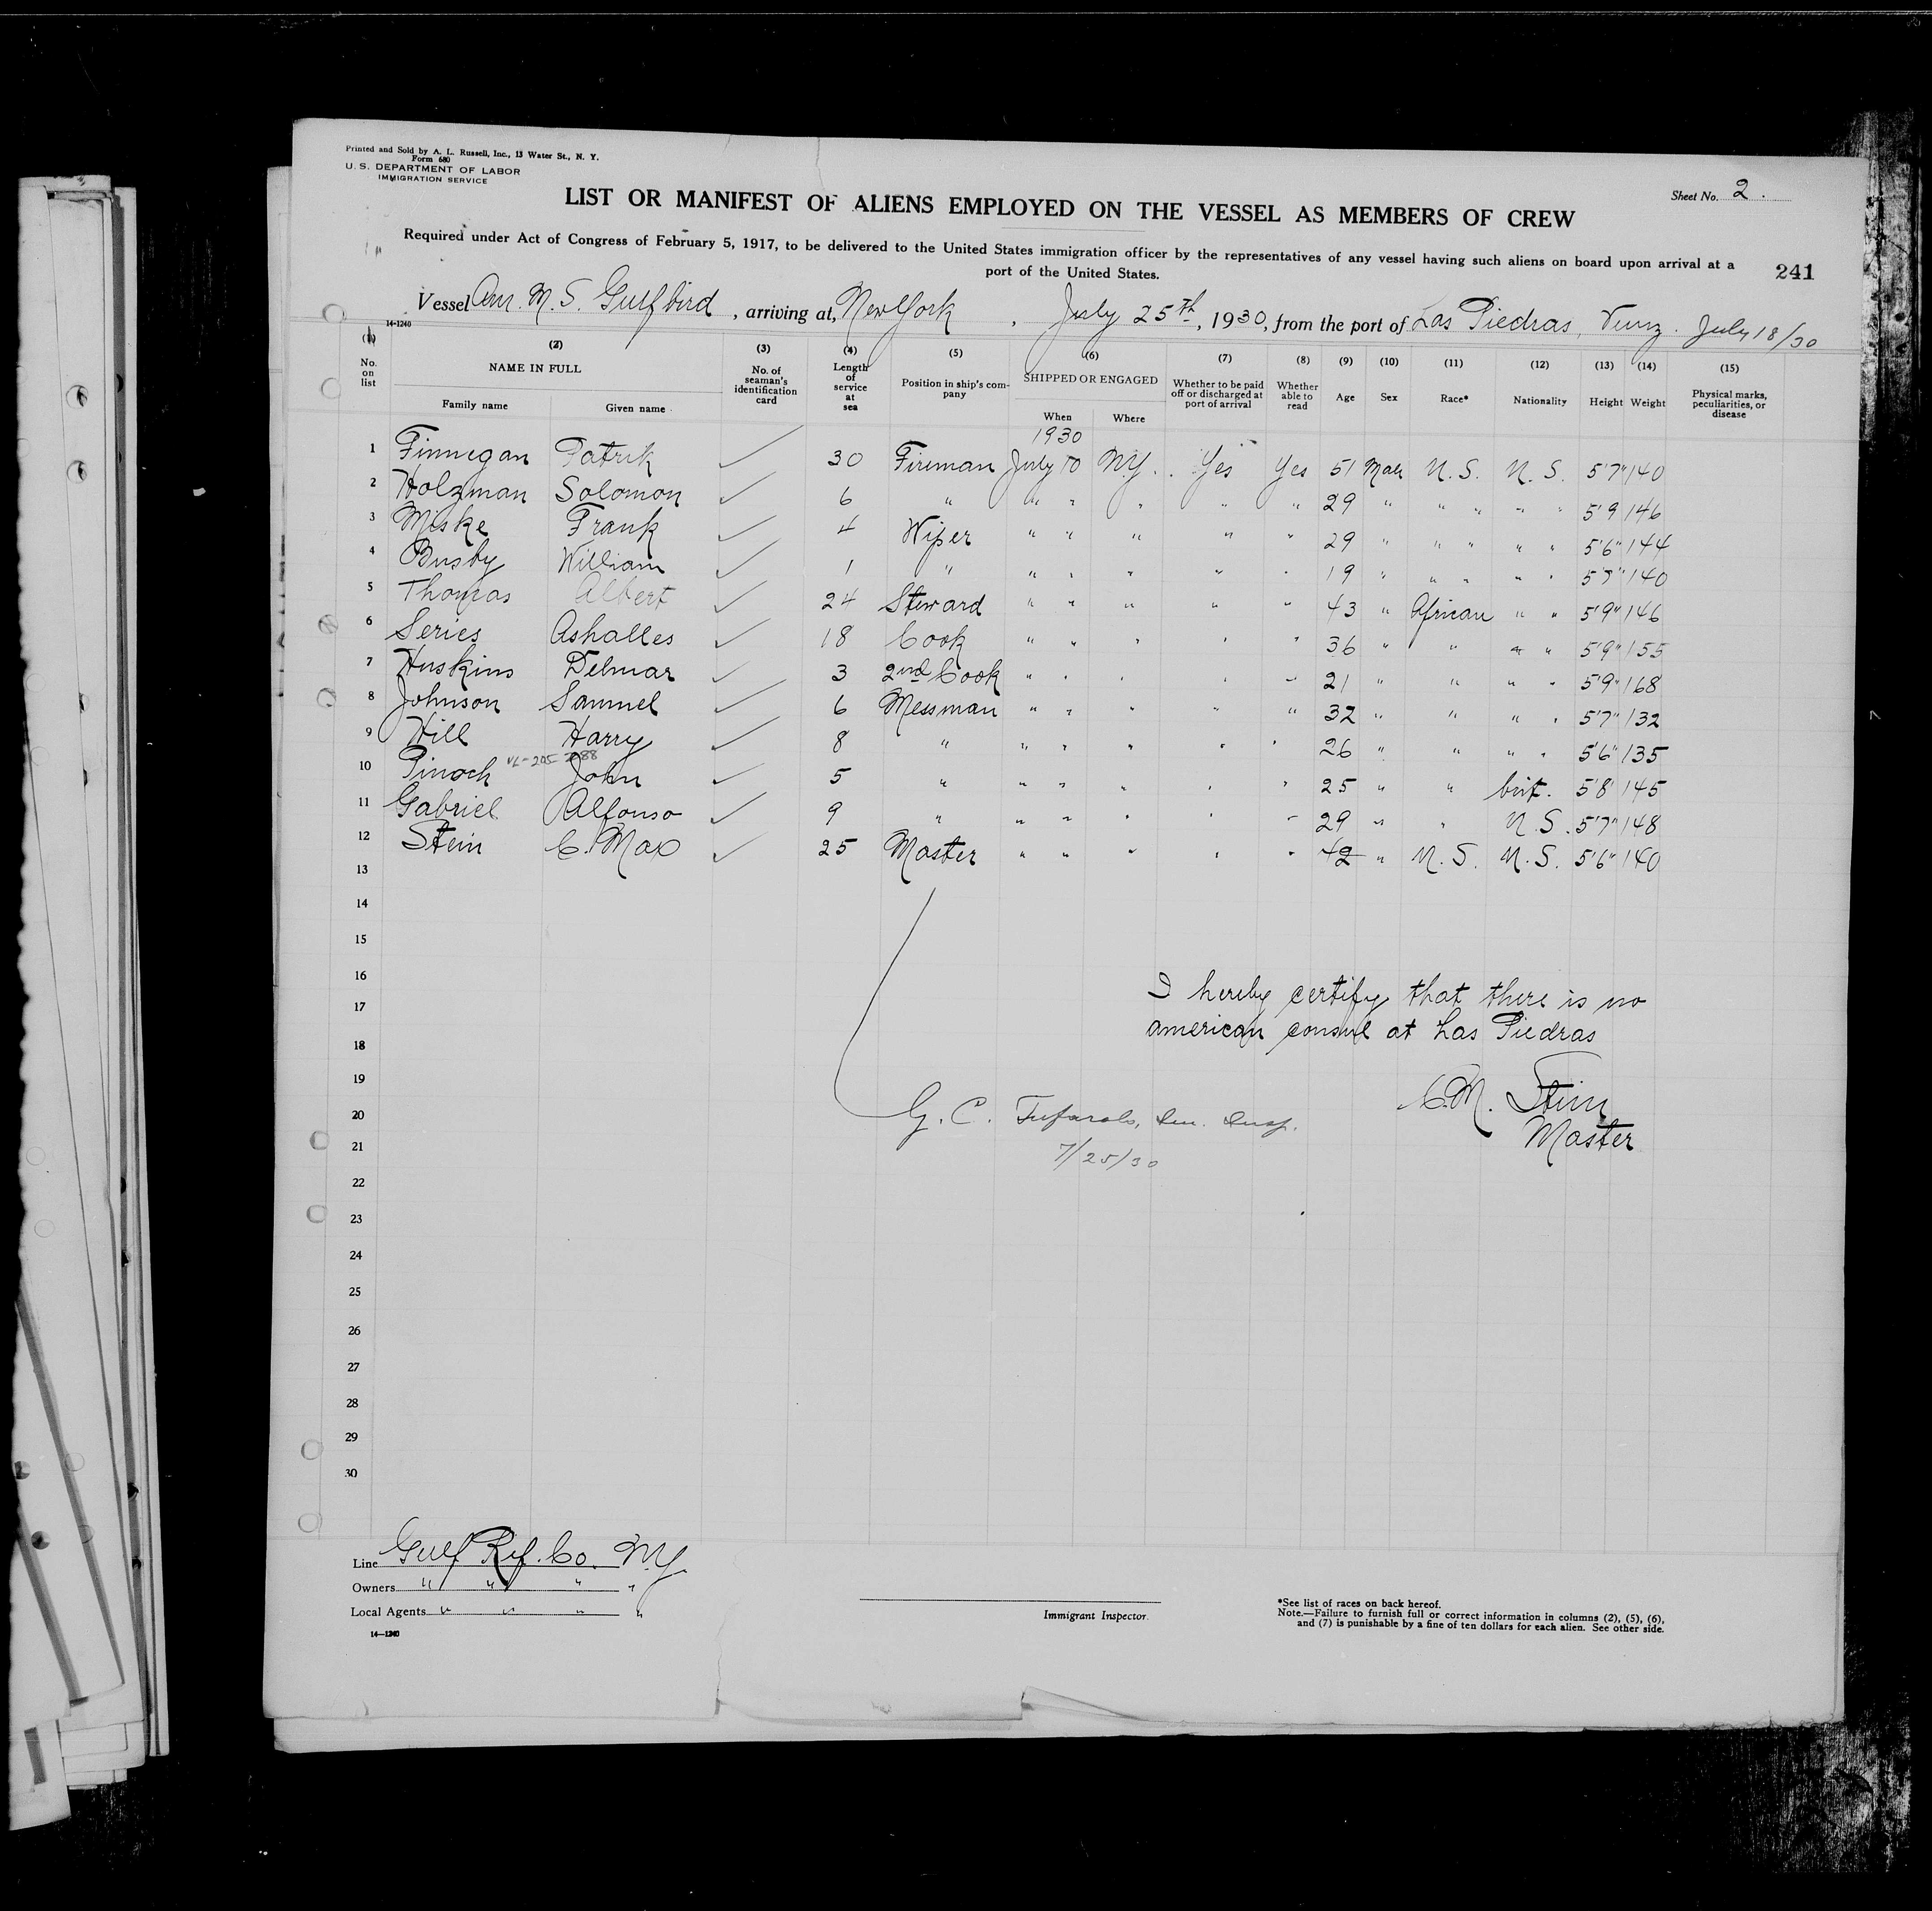 Printed and Sold by A. L. Russell, Inc., 13 Water St., N. Y.
Form 680
U. S. DEPARTMENT OF LABOR
IMMIGRATION SERVICE
Sheet No. 2.
LIST OR MANIFEST OF ALIENS EMPLOYED ON THE VESSEL AS MEMBERS OF CREW
Required under Act of Congress of February 5, 1917, to be delivered to the United States immigration officer by the representatives of any vessel having such aliens on board upon arrival at a
port of the United States.
241
Vessel Am. M. S. Gulfbird, arriving at, New York, July 25th, 1930, from the port of Las Piedras, Venz. July 18/30
14-1240
(1) (2) (3) (4) (5) (6) (7) (8) (9) (10) (11) (12) (13) (14) (15)
No. on list NAME IN FULL Family name Given name No. of seaman's identification card Length of service at sea Position in ship's company SHIPPED OR ENGAGED When Where Whether to be paid off or discharged at port of arrival Whether able to read Age Sex Race* Nationality Height Weight Physical marks, peculiarities, or disease
1930
1 Finnegan Patrik ✓ 30 Fireman July 10 N.Y. Yes Yes 51 Male U.S. U.S. 5'7" 140
2 Holzman Solomon ✓ 6 " " " " " " 29 " " " " " 5'9 146
3 Miske Frank ✓ 4 Wiper " " " " " 29 " " " " " 5'6" 144
4 Busby William ✓ 1 " " " " " " 19 " " " " " 5'7" 140
5 Thomas Albert ✓ 24 Steward " " " " " 43 " African " " 5'9" 146
6 Series Ashalles ✓ 18 Cook " " " " " 36 " " " " 5'9" 155
7 Huskins Delmar ✓ 3 2nd Cook " " " " " 21 " " " " 5'9" 168
8 Johnson Samuel ✓ 6 Messman " " " " " 32 " " " " 5'7" 132
9 Hill Harry ✓ 8 " " " " " " 26 " " " " 5'6" 135
10 Pinock John ✓ 5 " " " " " " 25 " " brit. 5'8" 145
11 Gabriel Alfonso ✓ 9 " " " " " " 29 " " U.S. 5'7" 148
12 Stein C. Max ✓ 25 Master " " " " " 42 " U.S. U.S. 5'6" 140
13
14
15
16
I hereby certify that there is no
17
american consul at Las Piedras
18
19
C.M. Stein
20
G. C.
Master
21
7/25/30
22
23
24
25
26
27
28
29
30
Line Gulf Ref. Co. N.Y.
Owners " " " "
Local Agents " " " "
14—1240
Immigrant Inspector.
*See list of races on back hereof.
Note.—Failure to furnish full or correct information in columns (2), (5), (6),
and (7) is punishable by a fine of ten dollars for each alien. See other side.